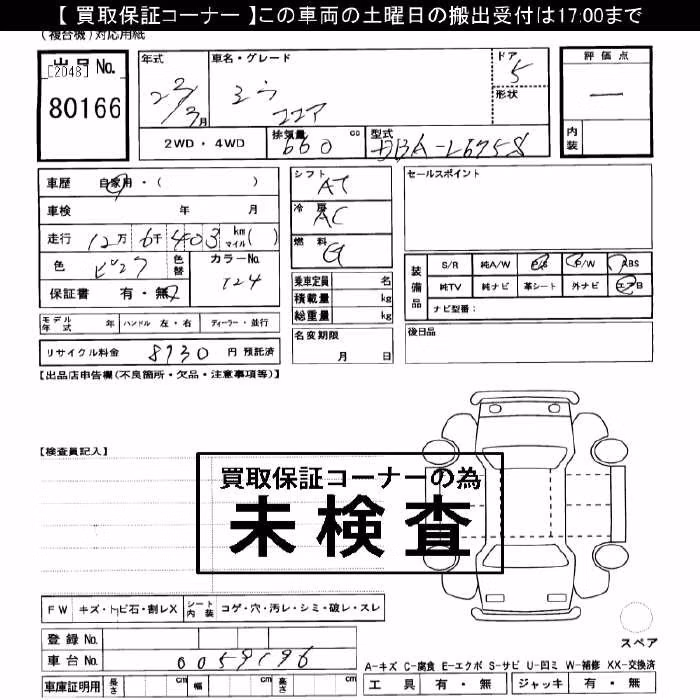 【 買取保証コーナー 】この車両の土曜日の搬出受付は17:00まで
(複合機)対応用紙
出品 No.
[2048]
80166
年式
22/3月
車名・グレード
ミラ
ココア
ドア
5
形状
評価点
―
内装
2WD・4WD
排気量 660 cc
型式 DBA-L675S
車歴 自家用・( )
車検 年 月
走行 12万6千403 km マイル( )
色 ピンク 色替
カラーNo. T24
保証書 有・無
シフト AT
冷房 AC
燃料 G
乗車定員 名
積載量 kg
総重量 kg
セールスポイント
装備品
S/R 純A/W P/S P/W ABS
純TV 純ナビ 革シート 外ナビ エアB
ナビ型番:
モデル年式 年 ハンドル 左・右 ディーラー・並行
名変期限
月 日
後日品
リサイクル料金 8930 円 預託済
【出品店申告欄(不良箇所・欠品・注意事項等)】
【検査員記入】
買取保証コーナーの為
未検査
FW キズ・トビ石・割レX
シート内装 コゲ・穴・汚レ・シミ・破レ・スレ
スペア
登録 No.
車台 No. 0059196
A-キズ C-腐食 E-エクボ S-サビ U-凹ミ W-補修 XX-交換済
車庫証明用 長さ cm 幅 cm 高さ cm
工具 有・無 ジャッキ 有・無